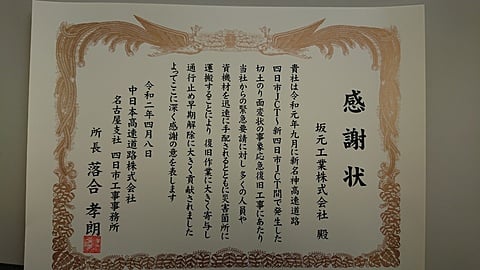 感謝状
坂元工業株式会社 殿
貴社は令和元年九月に新名神高速道路
四日市JCT～新四日市JCT間で発生した
切土のり面変状の事象応急復旧工事にあたり
当社からの緊急要請に対し多くの人員や
資機材を迅速に手配されるとともに災害箇所に
運搬することにより復旧作業に大きく寄与し
通行止め早期解除に大きく貢献されました
よってここに深く感謝の意を表します
令和二年四月八日
中日本高速道路株式会社
名古屋支社 四日市工事事務所
所長 落合 孝朗